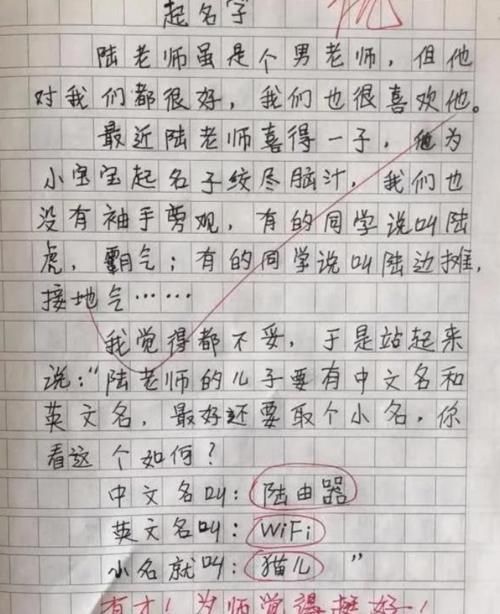 起名字
陆老师虽是个男老师，但他
对我们都很好，我们也很喜欢他。
最近陆老师喜得一子，他为
小宝宝起名子绞尽脑汁，我们也
没有袖手旁观，有的同学说叫陆
虎，霸气；有的同学说叫陆边摊，
接地气……
我觉得都不妥，于是站起来
说：“陆老师的儿子要有中文名和
英文名，最好还要取个小名，你
看这个如何？
中文名叫：陆由器
英文名叫：WiFi
小名就叫：猫儿”
有才！为师觉得挺好！